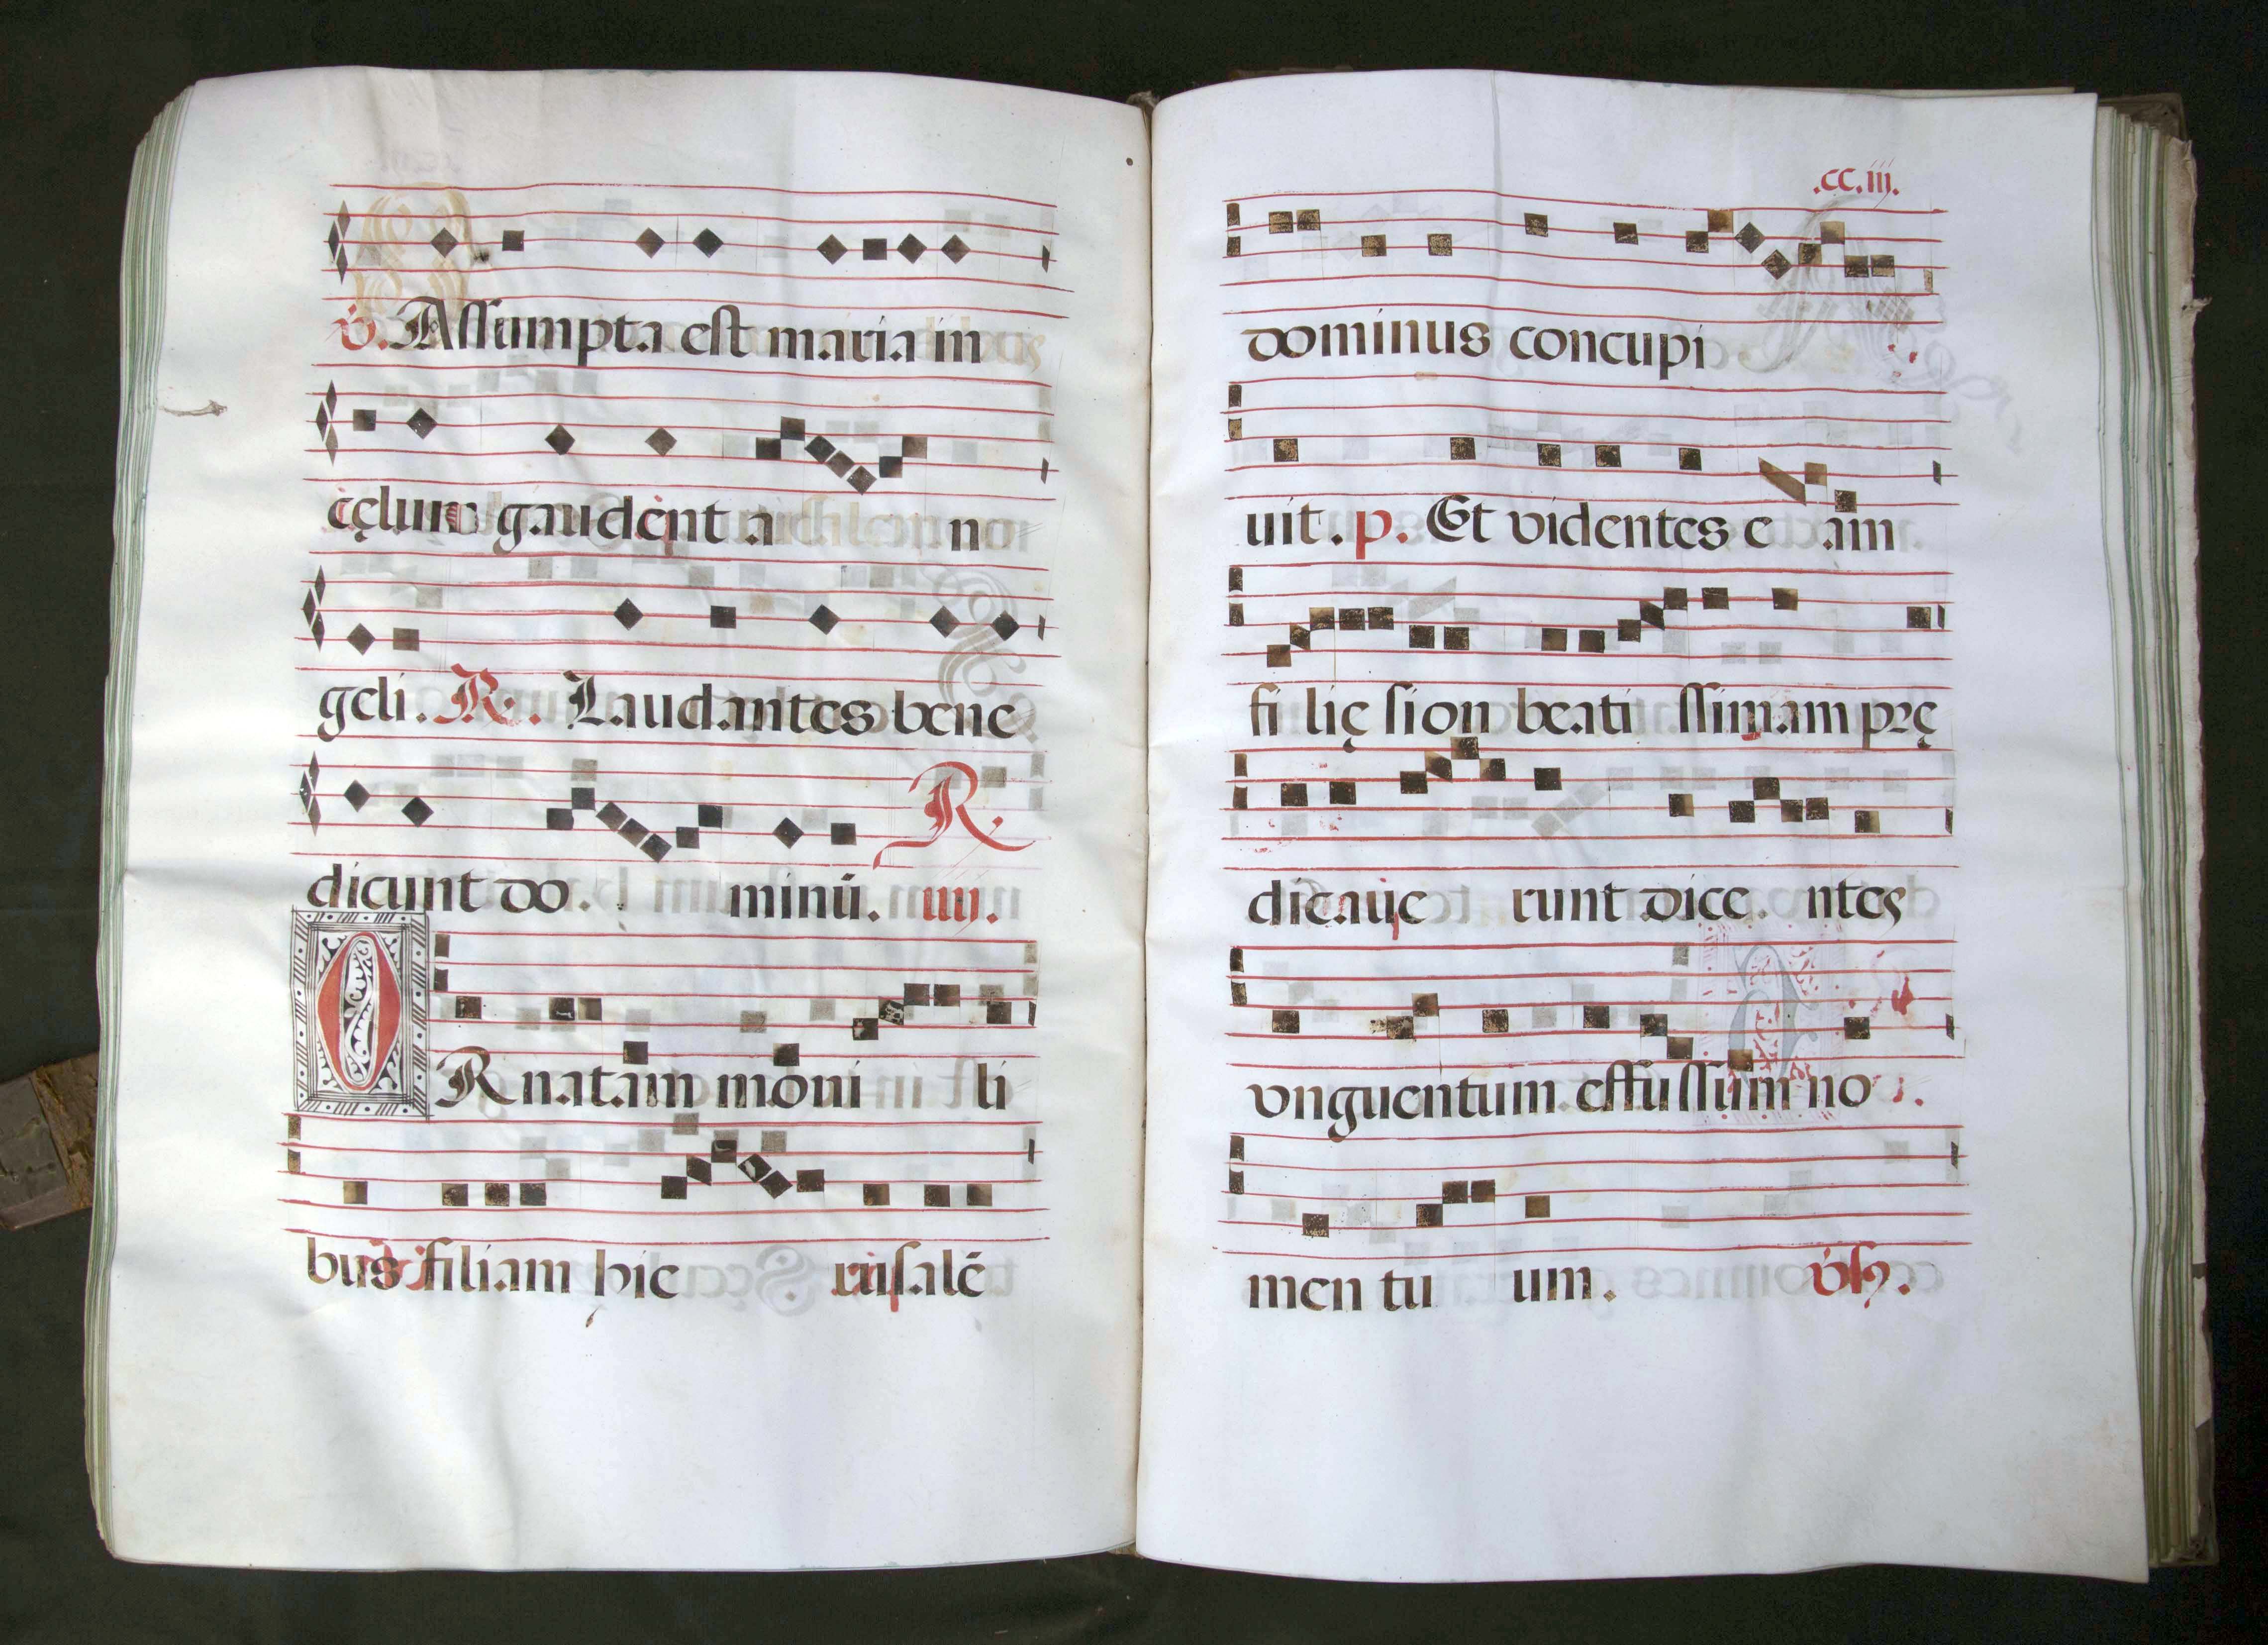 v. Assumpta est maria in
cęlum gaudent a n
geli. R. Laudantes bene
dicunt do minū. R. iiij.
ORnatam moni li
bus filiam hie rusalē
.cc.iij.
dominus concupi
uit. p. Et videntes e am
fi lię sion beati ssimam prę
dicaue runt dice ntes
vnguentum effussum no
men tu um. vs.